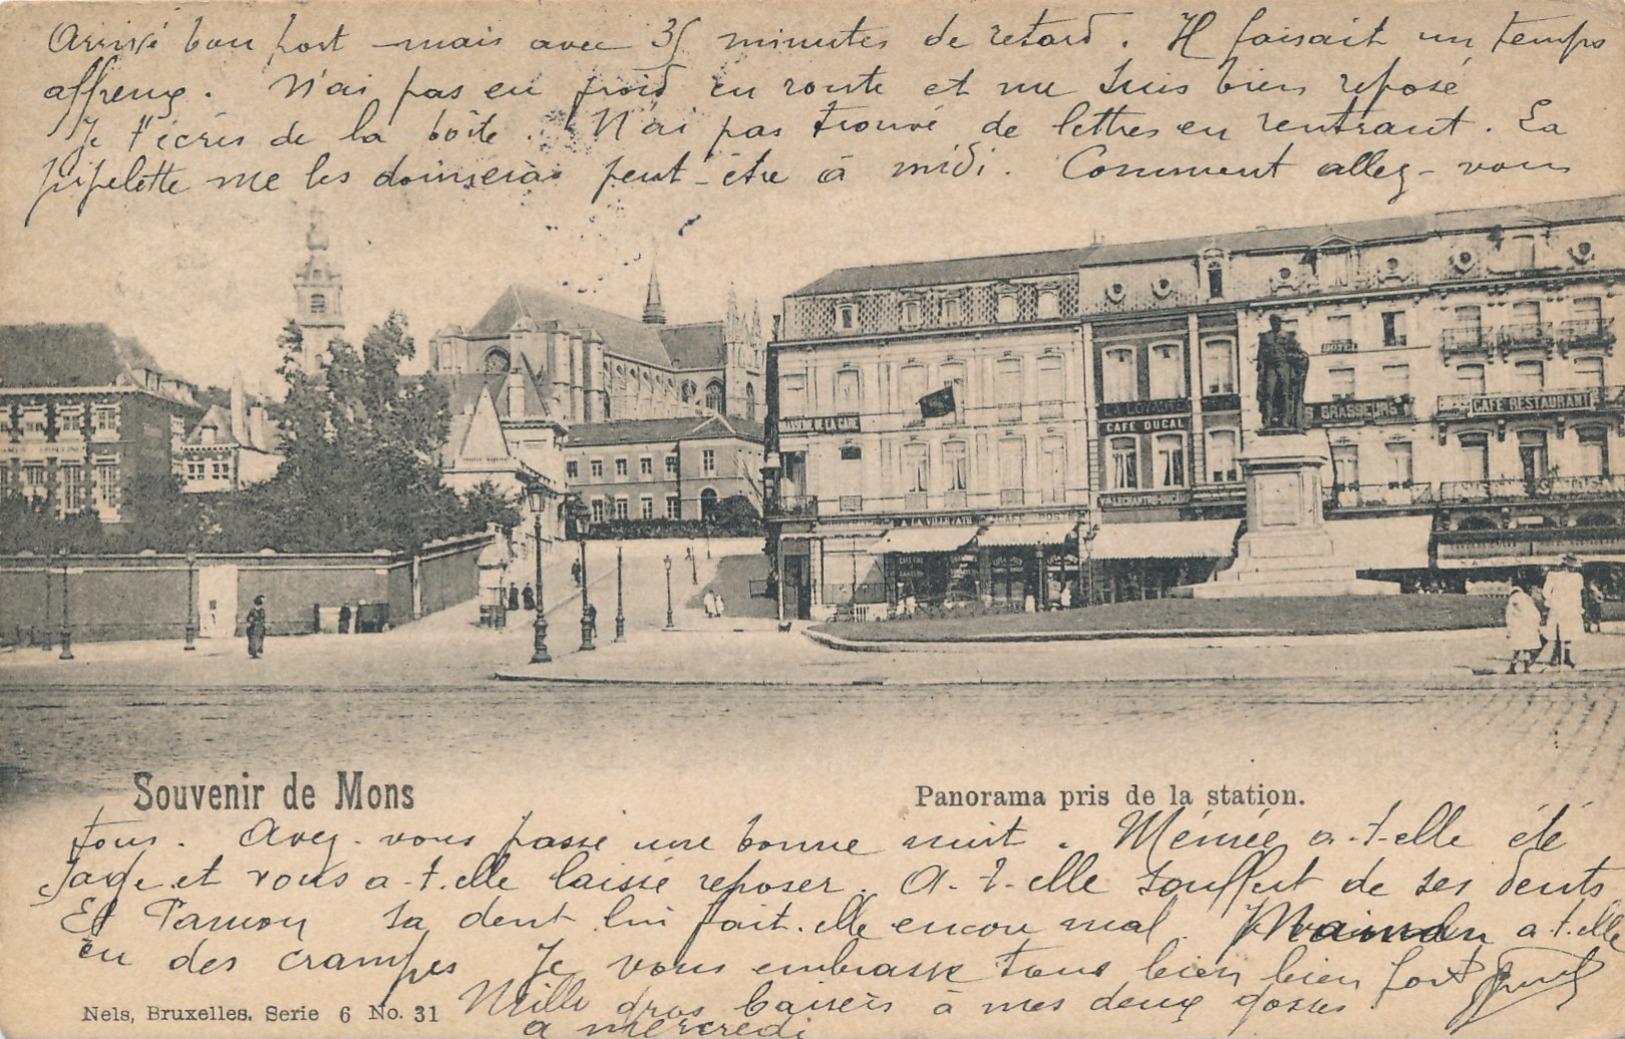 Arrivé bon port – mais avec 35 minutes de retard. Il faisait un temps
affreux. N'ai pas eu froid en route et me suis bien reposé
Je t'écris de la boîte. N'ai pas trouvé de lettres en rentrant. La
pipelette me les donnera peut-être à midi. Comment allez-vous
BRASSERIE DE LA GARE
CAFÉ DUCAL
HOTEL
S BRASSEURS
CAFÉ RESTAURANT
Souvenir de Mons
Panorama pris de la station.
tous. Avez-vous passé une bonne nuit. Mémée a-t-elle été
sage et vous a-t-elle laissé reposer. A-t-elle souffert de ses dents
Et sa dent lui fait-elle encore mal. a t.elle
eu des crampes Je vous embrasse tous bien bien fort
Mille gros baisers à mes deux gosses
Nels, Bruxelles. Serie 6 No. 31
a mercredi